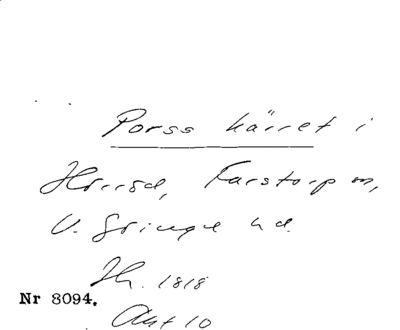 Porss kärret i
Hörröd, Farstorp sn,
V. Göinge hd.
Th. 1818
Nr 8094.
Akt 10